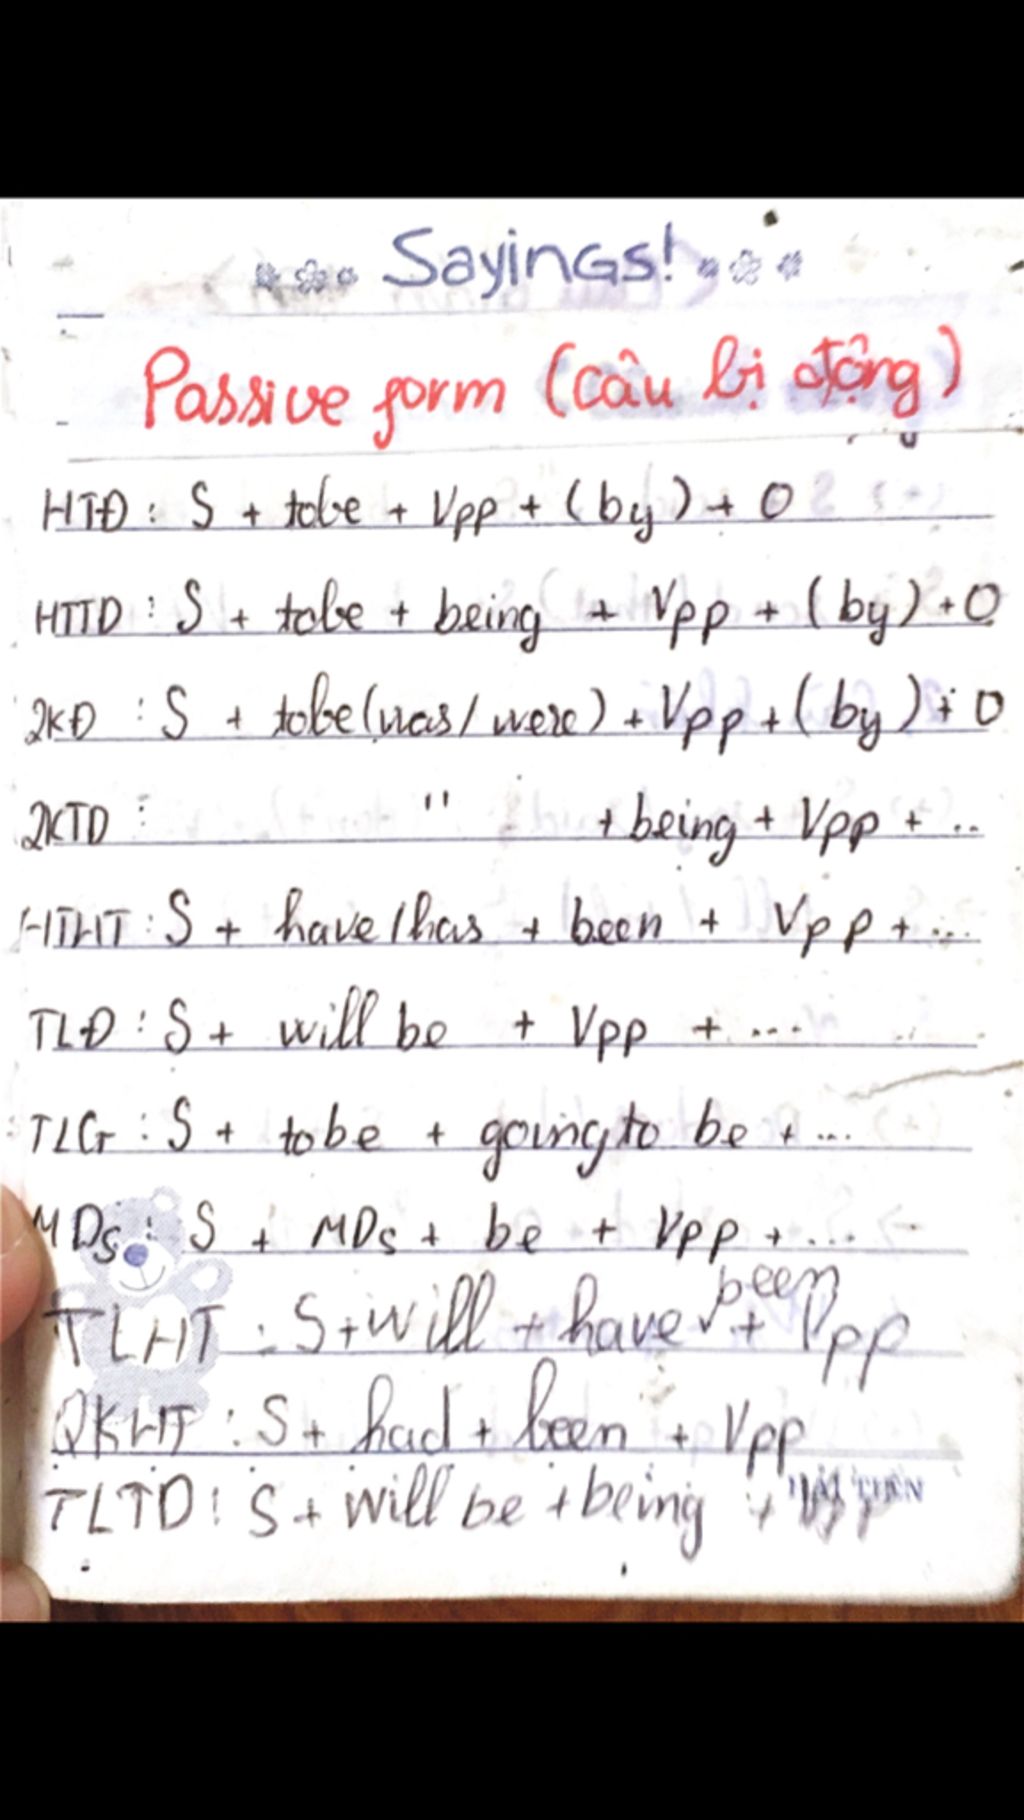 Sayings!
Passive form (câu bị động)
HTĐ : S + tobe + Vpp + (by) + O
HTTD : S + tobe + being + Vpp + (by) + O
QKĐ : S + tobe (was/were) + Vpp + (by) + O
QKTD : " + being + Vpp + ..
HTHT : S + have/has + been + Vpp + ...
TLĐ : S + will be + Vpp + ...
TLG : S + tobe + going to be + ...
MDs : S + MDs + be + Vpp + ...
TLHT : S + will + have been + Vpp
QKHT : S + had + been + Vpp
TLTD : S + will be + being + Vpp